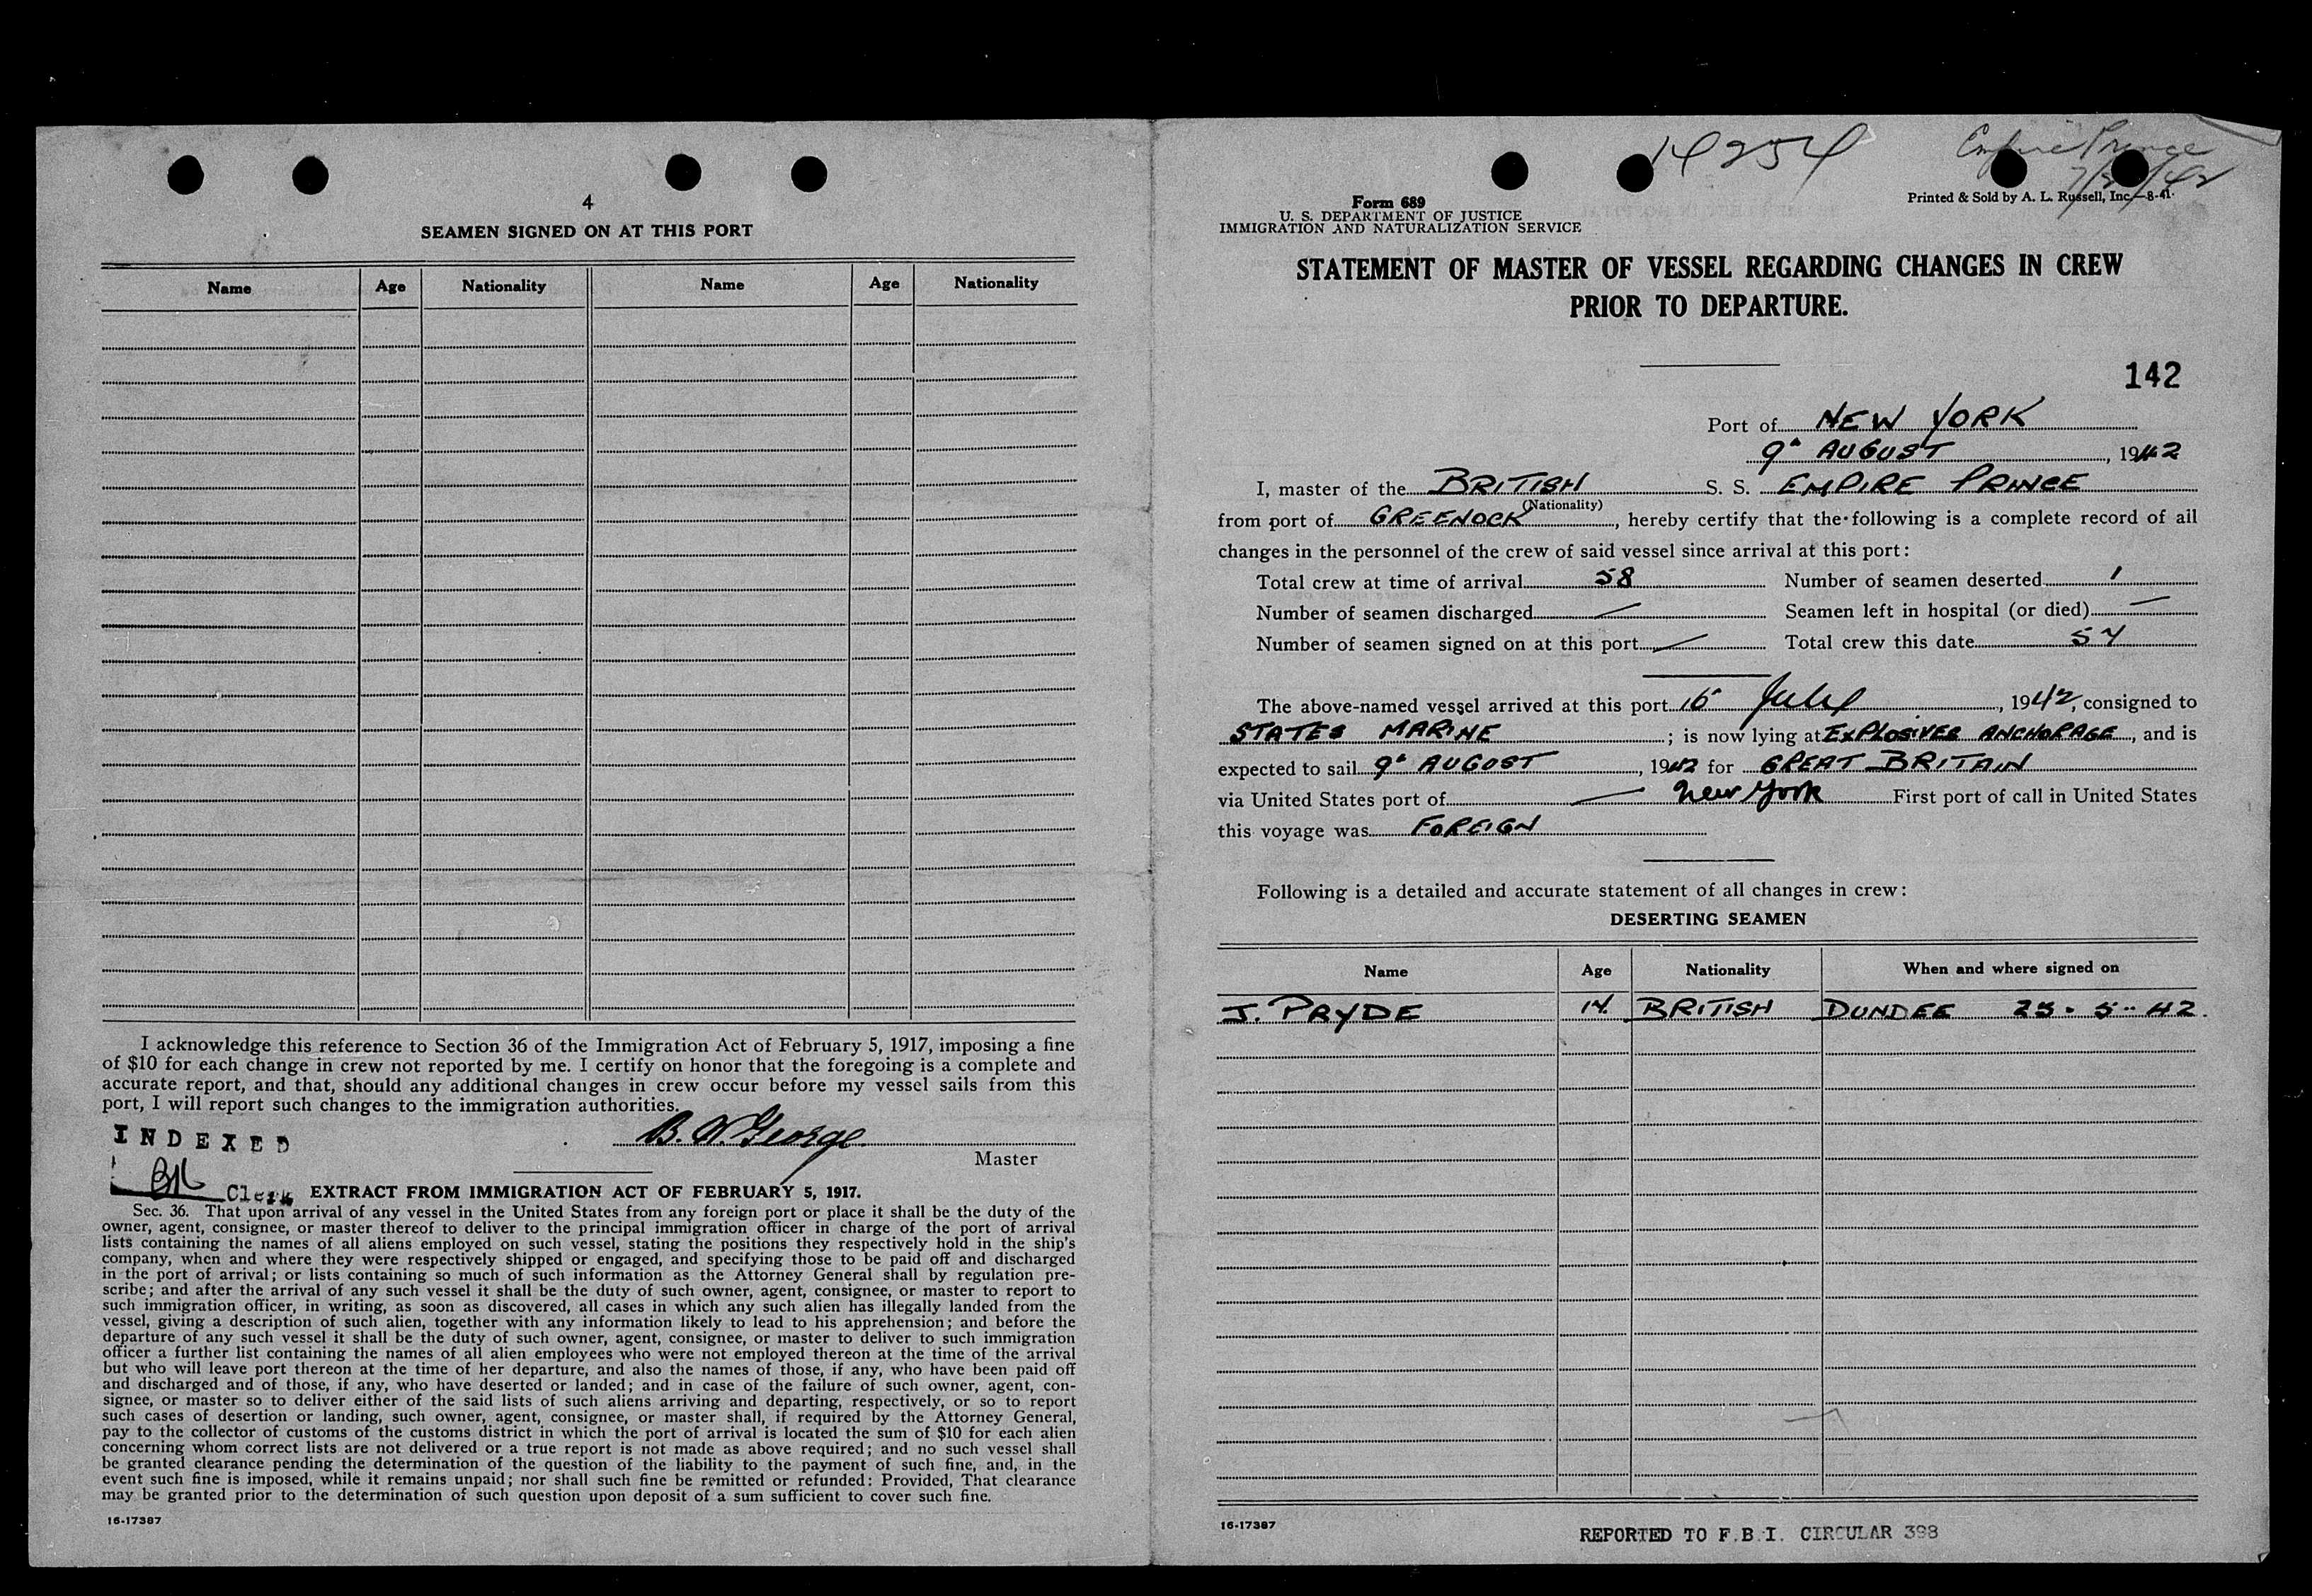 4
SEAMEN SIGNED ON AT THIS PORT
Name Age Nationality Name Age Nationality
I acknowledge this reference to Section 36 of the Immigration Act of February 5, 1917, imposing a fine
of $10 for each change in crew not reported by me. I certify on honor that the foregoing is a complete and
accurate report, and that, should any additional changes in crew occur before my vessel sails from this
port, I will report such changes to the immigration authorities.
INDEXED
B. W. George
Master
Clerk
EXTRACT FROM IMMIGRATION ACT OF FEBRUARY 5, 1917.
Sec. 36. That upon arrival of any vessel in the United States from any foreign port or place it shall be the duty of the
owner, agent, consignee, or master thereof to deliver to the principal immigration officer in charge of the port of arrival
lists containing the names of all aliens employed on such vessel, stating the positions they respectively hold in the ship's
company, when and where they were respectively shipped or engaged, and specifying those to be paid off and discharged
in the port of arrival; or lists containing so much of such information as the Attorney General shall by regulation pre-
scribe; and after the arrival of any such vessel it shall be the duty of such owner, agent, consignee, or master to report to
such immigration officer, in writing, as soon as discovered, all cases in which any such alien has illegally landed from the
vessel, giving a description of such alien, together with any information likely to lead to his apprehension; and before the
departure of any such vessel it shall be the duty of such owner, agent, consignee, or master to deliver to such immigration
officer a further list containing the names of all alien employees who were not employed thereon at the time of the arrival
but who will leave port thereon at the time of her departure, and also the names of those, if any, who have been paid off
and discharged and of those, if any, who have deserted or landed; and in case of the failure of such owner, agent, con-
signee, or master so to deliver either of the said lists of such aliens arriving and departing, respectively, or so to report
such cases of desertion or landing, such owner, agent, consignee, or master shall, if required by the Attorney General,
pay to the collector of customs of the customs district in which the port of arrival is located the sum of $10 for each alien
concerning whom correct lists are not delivered or a true report is not made as above required; and no such vessel shall
be granted clearance pending the determination of the question of the liability to the payment of such fine, and, in the
event such fine is imposed, while it remains unpaid; nor shall such fine be remitted or refunded: Provided, That clearance
may be granted prior to the determination of such question upon deposit of a sum sufficient to cover such fine.
16-17387
14254
Empire Prince
Form 689
U. S. DEPARTMENT OF JUSTICE
IMMIGRATION AND NATURALIZATION SERVICE
Printed & Sold by A. L. Russell, Inc.—8-41.
STATEMENT OF MASTER OF VESSEL REGARDING CHANGES IN CREW
PRIOR TO DEPARTURE.
142
Port of NEW YORK
9" AUGUST, 1942
I, master of the BRITISH S. S. EMPIRE PRINCE
(Nationality)
from port of GREENOCK, hereby certify that the following is a complete record of all
changes in the personnel of the crew of said vessel since arrival at this port:
Total crew at time of arrival 58 Number of seamen deserted 1
Number of seamen discharged — Seamen left in hospital (or died) —
Number of seamen signed on at this port — Total crew this date 57
The above-named vessel arrived at this port July, 1942, consigned to
STATES MARINE; is now lying at EXPLOSIVES ANCHORAGE, and is
expected to sail 9" AUGUST, 1942 for GREAT BRITAIN
via United States port of — New York First port of call in United States
this voyage was FOREIGN
Following is a detailed and accurate statement of all changes in crew:
DESERTING SEAMEN
Name Age Nationality When and where signed on
J. PRYDE BRITISH DUNDEE 25.5.42.
16-17387
REPORTED TO F.B.I. CIRCULAR 398